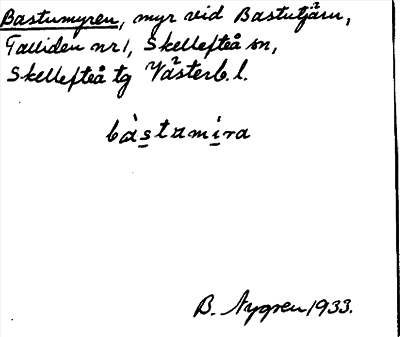 Bastumyren, myr vid Bastutjärn,
Talliden nr 1, Skellefteå sn,
Skellefteå tg Västerb. l.
bàstamira
B. Nygren 1933.